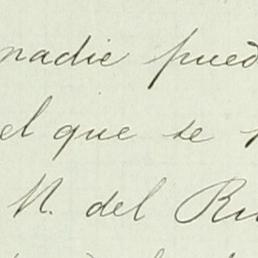 nadie pued
el que se
N. del Ru